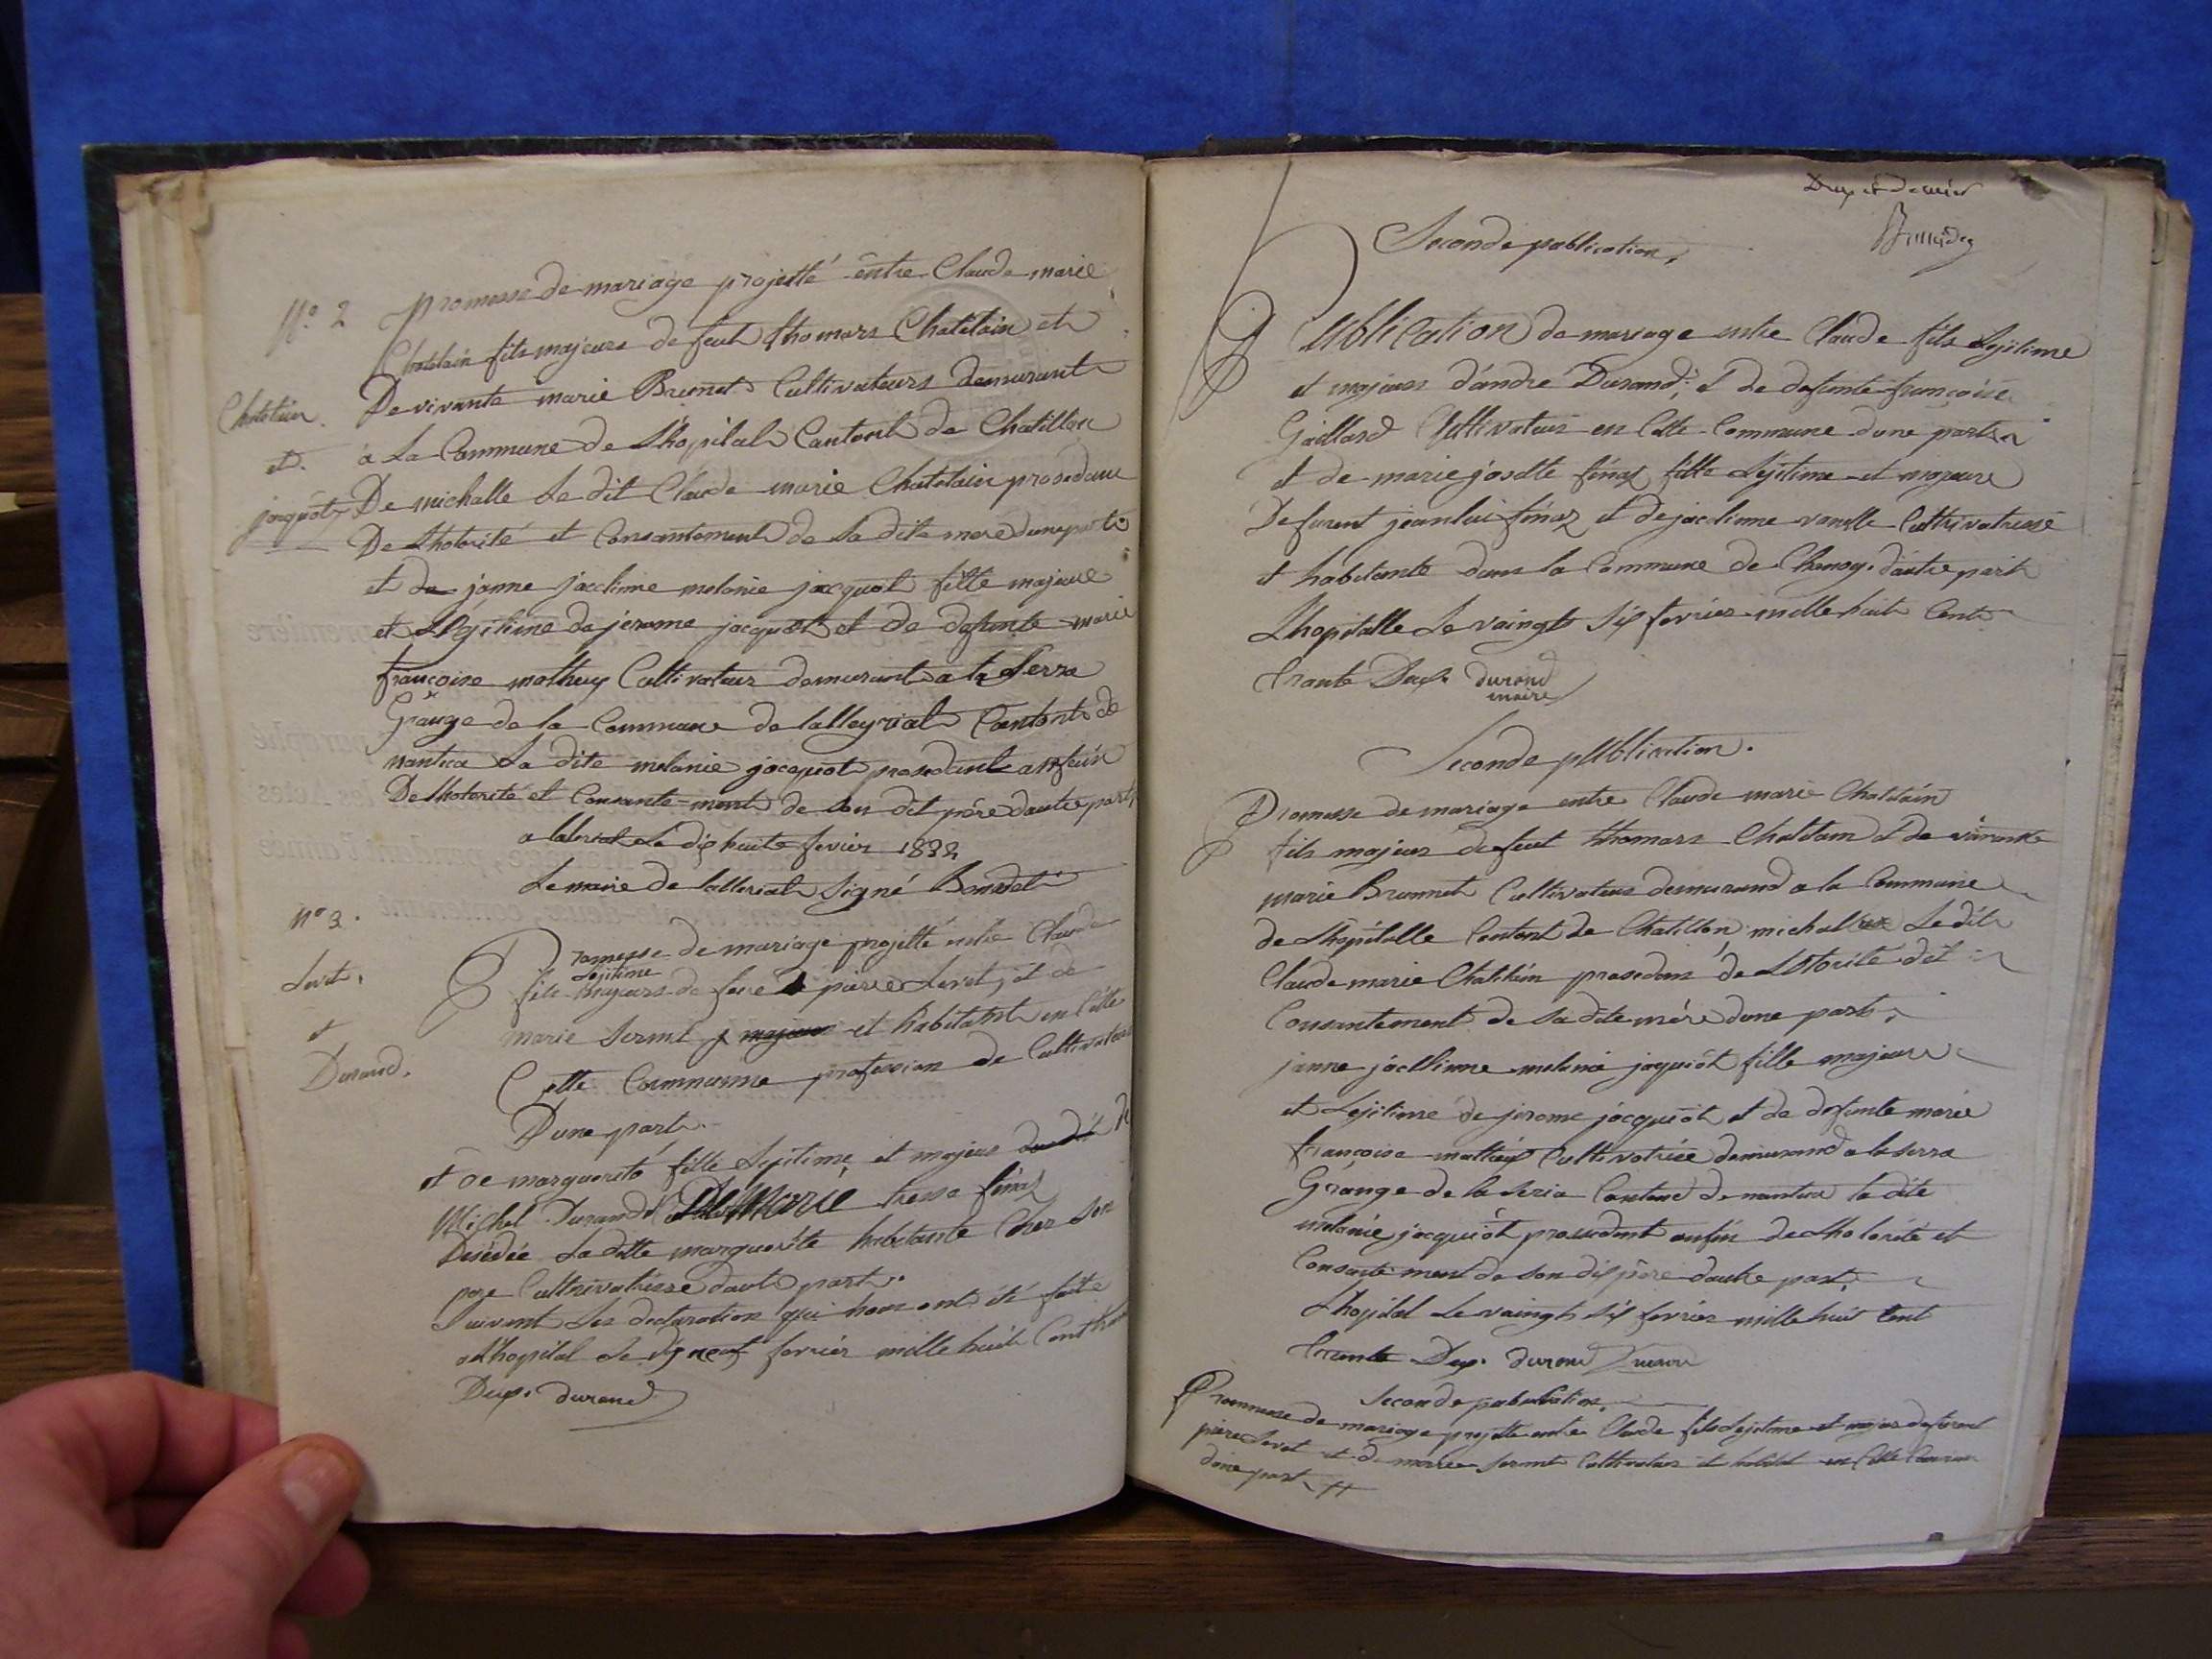 N.º 2 promesse de mariage projetté entre Claude marie
Chatelain fils majeure de feut thomars Chatelain et
Chatelain. De vivante marie Brunet Cultivateurs demurant
et. a La Commune de L'hopital Cantont de Chatillon
jacquot De michalle Le dit Claude marie Chatelain prosedant
De Lhotorité et Consantement de sa dite mere dune part
et de janne jacclinne melanie jacquot fille majeure
et Legitime de jerome jacquot et de defunte marie
francoise matheux Cultivateur demurant a la Serra
Grange de la Commune de lalleyriat Cantont de
nantua La dite melanie jacquot prosedant anfein
De Lhotorité et Consante-ment de son dit père dautre part,
a laleriat Le dix huite fevrier 1832
Le maire de lalleriat Signé
Nº 3.
Promesse de mariage projetté entre Claude
Lejitime
Levet. fils majeurs de feue pierre Levet, et de
et marie et habitant en Cette
Durand. Cette Commune profession de Cultivateur
D'une part.
et de marguerite fille Lejitime et majeur
Michel Durand et De Marie finaz
Desédée La ditte marguerite habitante Chez Son
pere Cultrivatrisse dautre part.
Suivant Les declaration qui nous ont été faite
a Lhopital Le diz neuf fevrier mille huit Cent trante
Deux. durand
Deux et dernier
Seconde publication.
Publication de mariage entre Claude fils Lejitime
et majeur d'andré Durand; et de defunte françoise
Gaillard Cultivateur en Cette Commune dune part
et de marie josette finaz fille Lejitime et majeure
Defurent jeanlui finaz et de jacclinne Cultrivatrisse
et habitante dans la Commune de Chanay. dautre part
Lhopitalle Le vaingt Six fevrier mille huit Cent
trante Deux. durand
maire
Seconde pUblication.
Promesse de mariage entre Claude marie Chatelain
fils majeur defeut thomars Chatelain et de vivante
marie Brunnet Cultivateur demurand a la Commune
de Lhopitalle Contont de Chatillon michalle Le dit
Claude marie Chatelain prosedant de Lotorité det
Consantement de Sa dite mère dune part;
janne jacllinne melanie jacquiot fille majeure
et Lejitime de jerome jacquiot et de defunte marie
françoise mattieux Cultivatrice demurand a la serra
Grange de la leria Contont de nantua la dite
melanie jacquiot prosedant anfin de Lhotorité et
Consante ment de son dis père dautre part,
Lhopital Le vaingt Six fevrier mille huit Cent
trante Deux. durand maire
Seconde publication.
Prommesse de mariage projette entre Claude fils Lejitime et majer defurent
pierre Levet et de marie Cultivateur et habitant en Cette Commune
dune part